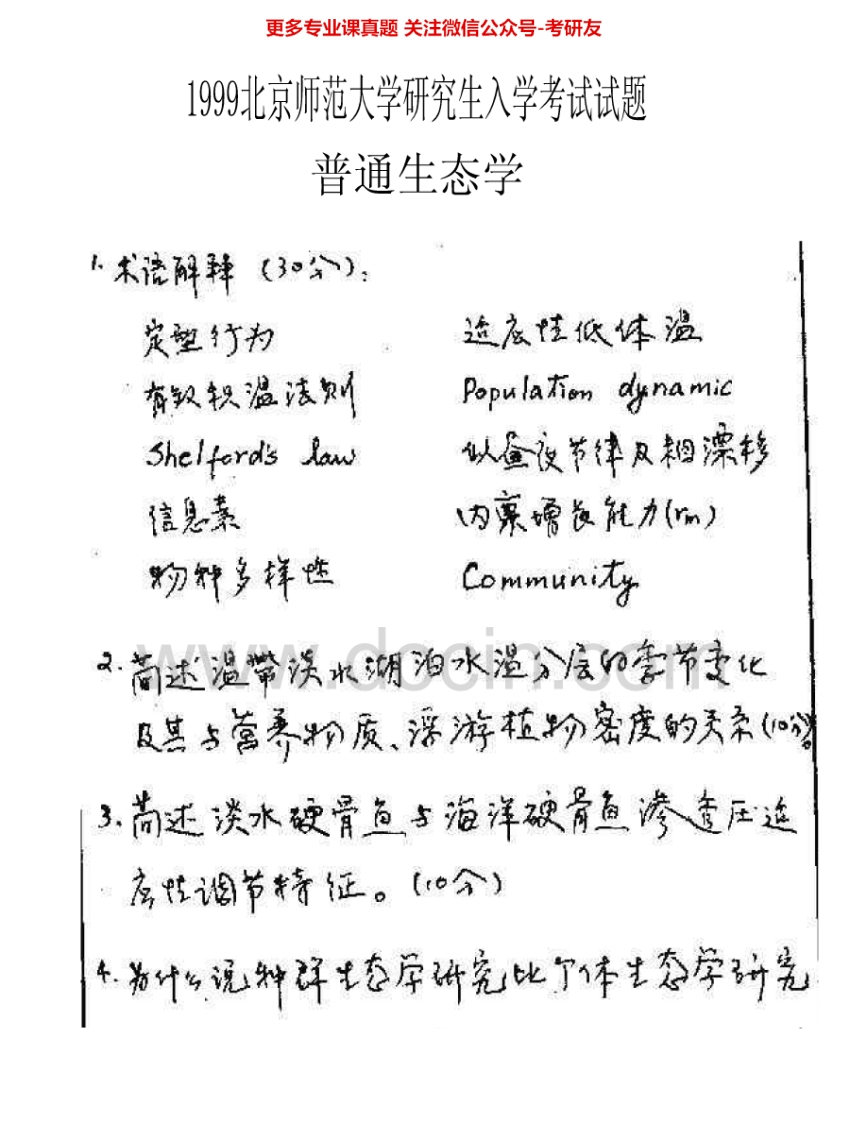 更多专业课真题 关注微信公众号-考研友
1999北京师范大学研究生入学考试试题
普通生态学
1. 术语解释 (30分):
定型行为 适应性低体温
有效积温法则 Population dynamic
Shelford's law 似昼夜节律及相漂移
信息素 内禀增长能力(rm)
物种多样性 Community
www.docin.com
2. 简述温带淡水湖泊水温分层的季节变化
及其与营养物质、浮游植物密度的关系(10分)。
3. 简述淡水硬骨鱼与海洋硬骨鱼渗透压适
应性调节特征。(10分)
4. 为什么说种群生态学研究比个体生态学研究